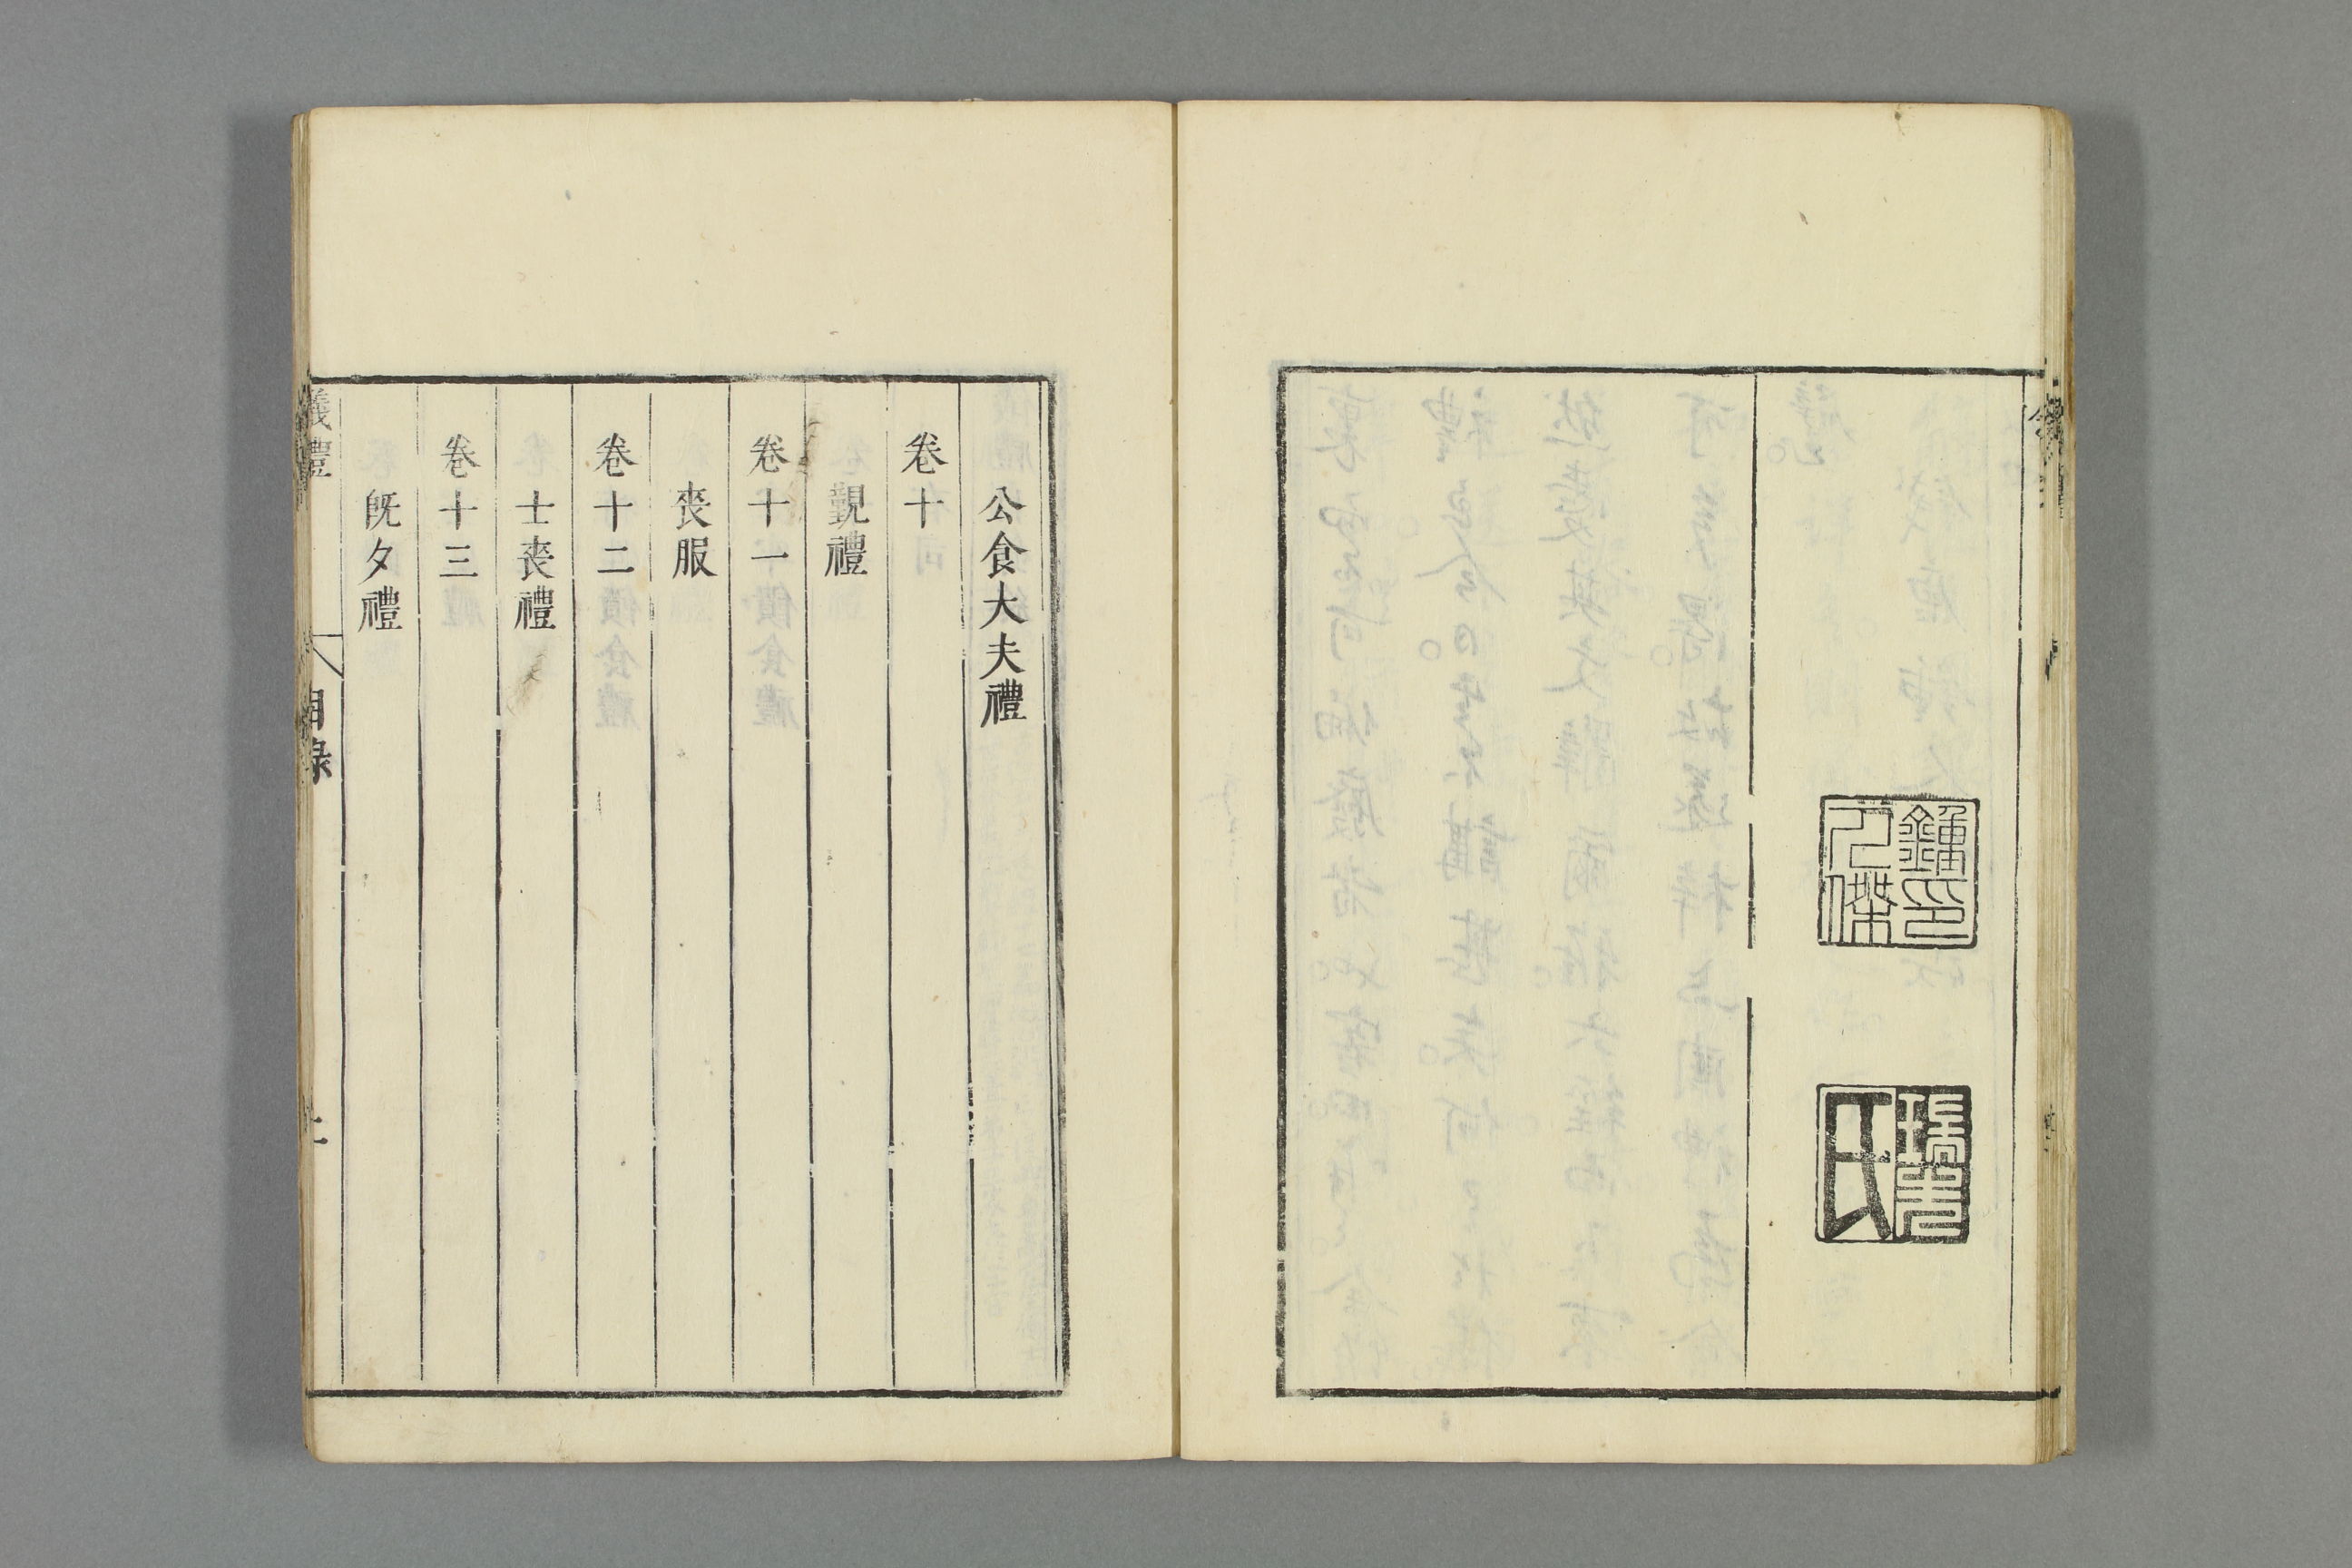 鍾印
人傑
瑞先
氏
公食大夫禮
卷十
覲禮
卷十一
喪服
卷十二
士喪禮
卷十三
既夕禮
儀禮
目錄